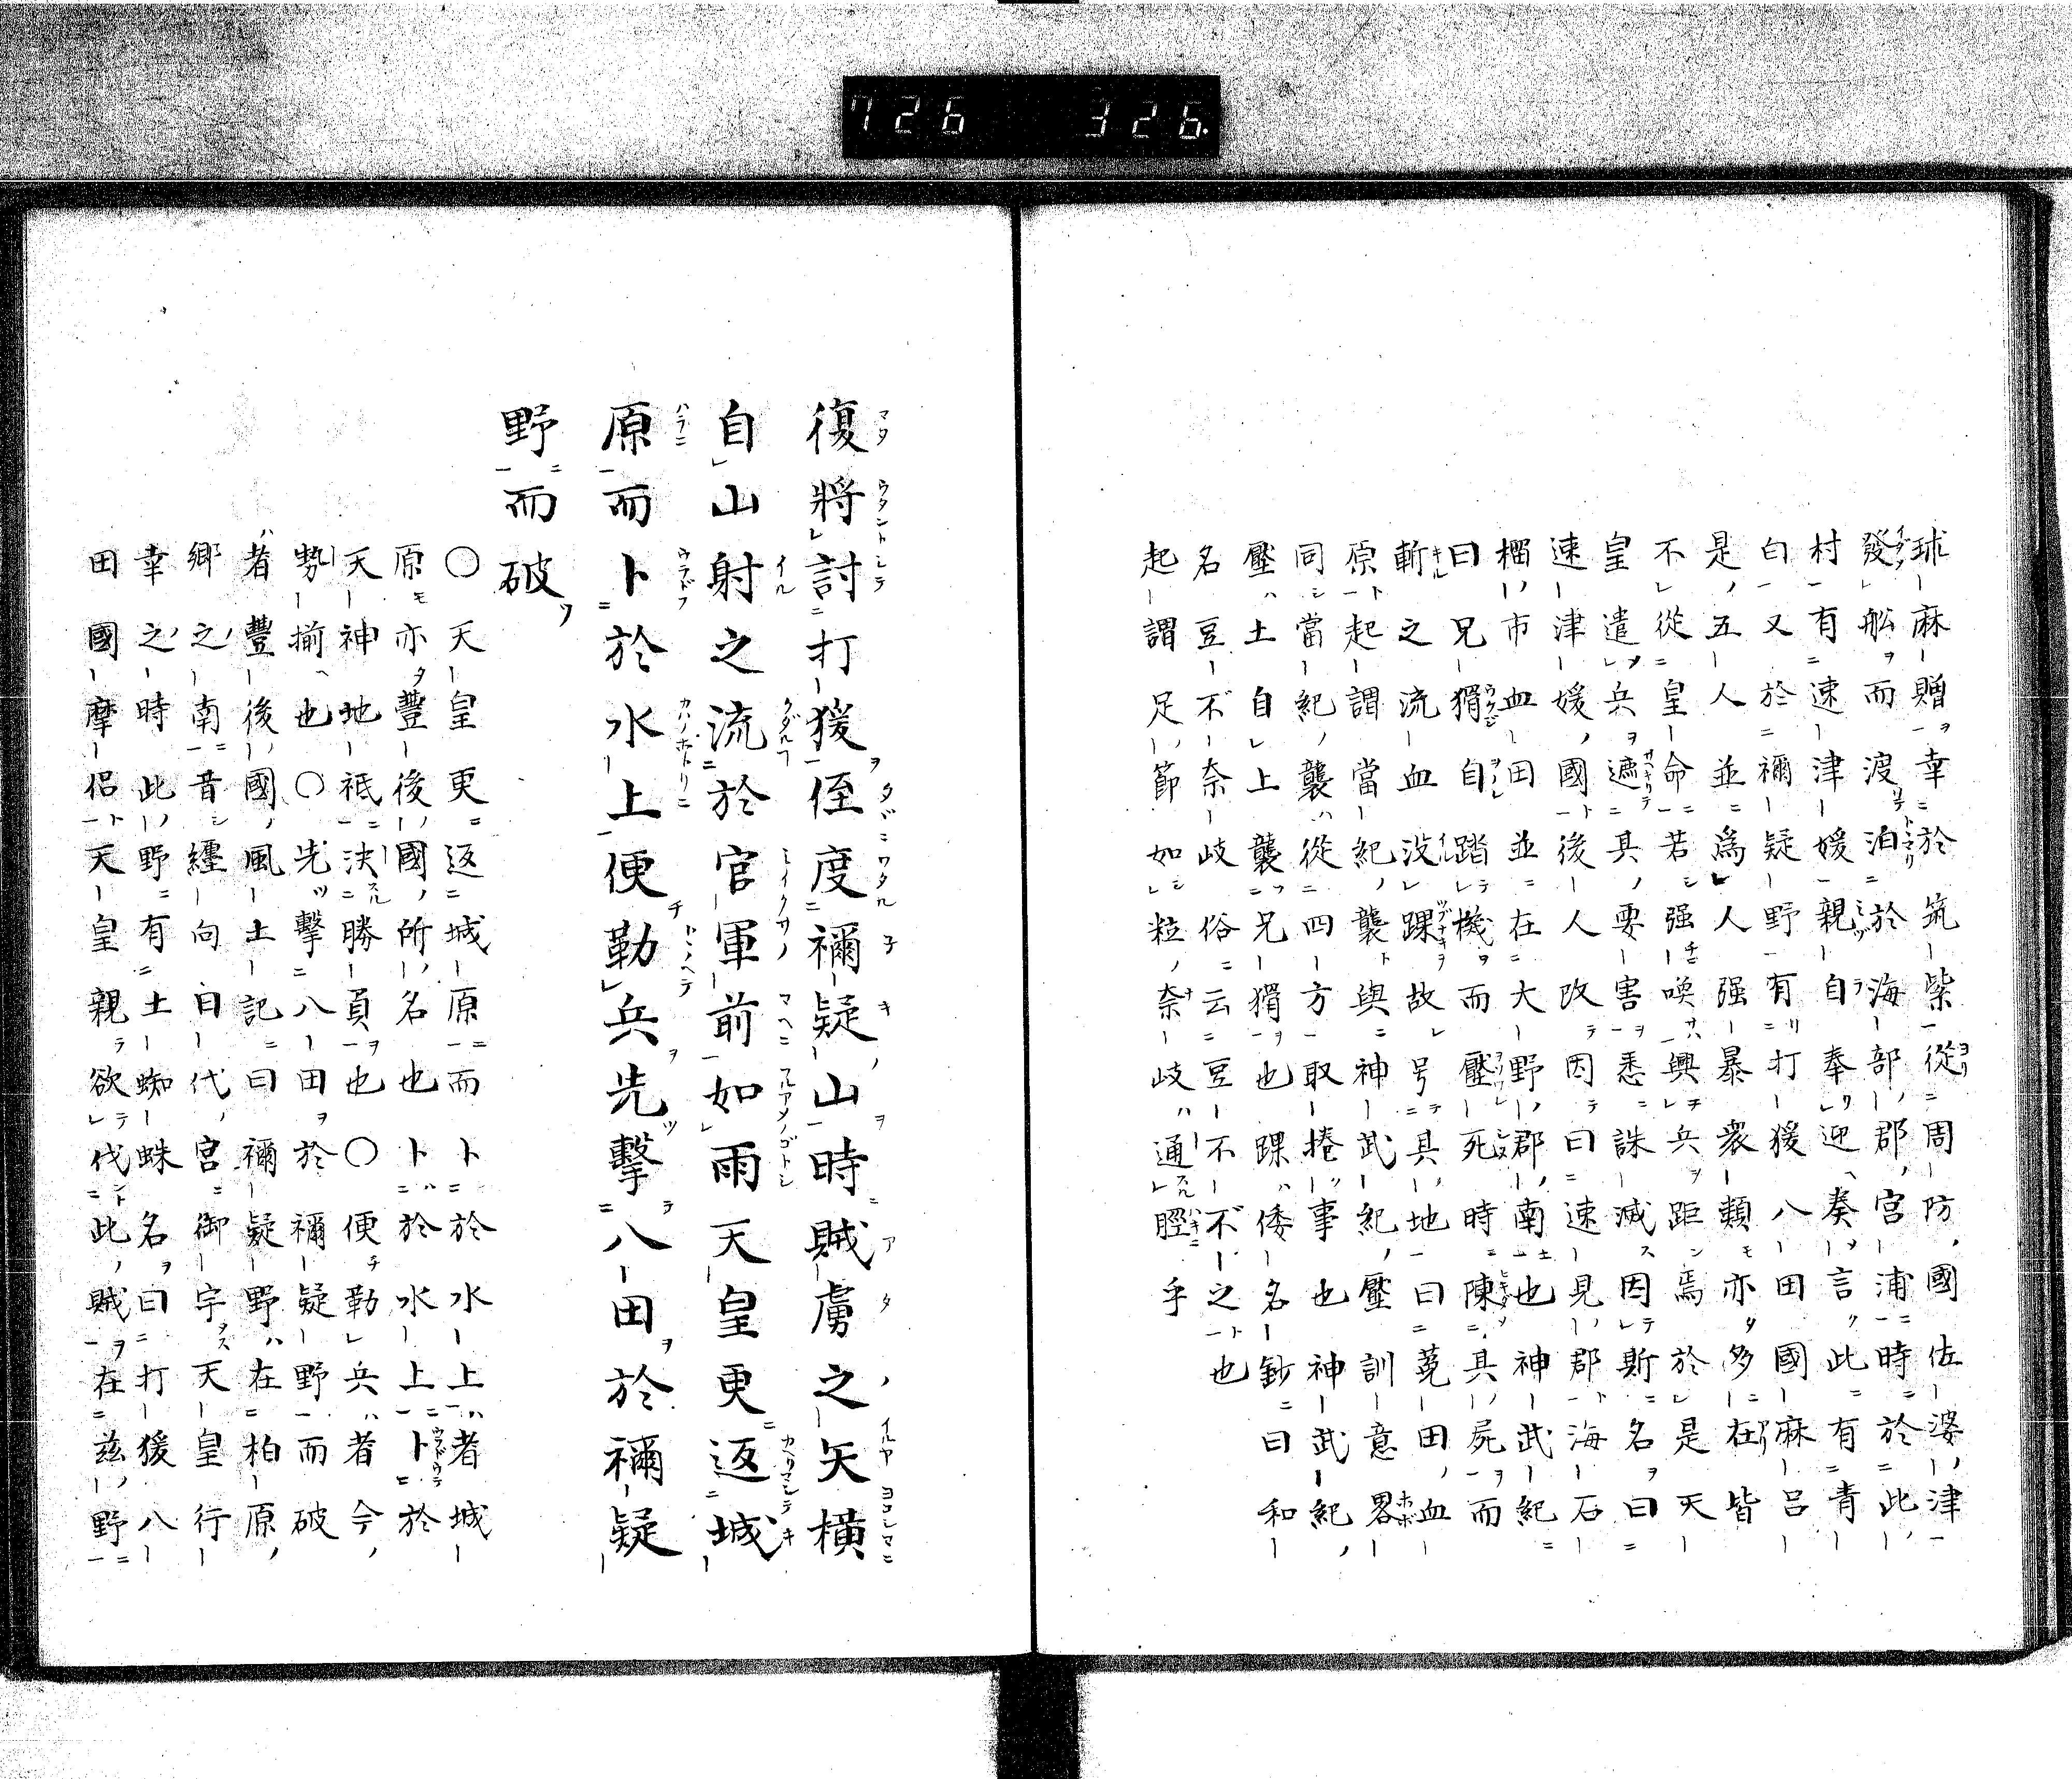 726 326
球麻贈幸於筑紫從周防國佐婆津
發舩而渡泊於海部郡宮浦時於此
村有速津媛親自奉迎奏言此有青
白又於禰疑野有打猨八田國麻呂
是五人並爲人强暴衆類亦多在皆
不從皇命若强喚興兵距焉於是天
皇遣兵遮其要害悉誅滅因斯名曰
速津媛國後人改因曰速見郡海石
榴市血田並在大野郡南也神武紀
曰兄猾自踏機而壓死時陳其屍而
斬之流血没踝故号其地曰菟田血
原起謂當紀襲與神武紀壓訓意畧
同當紀襲從四方取捲事也神武紀
壓土自上襲兄猾也踝倭名鈔曰和
名豆不奈岐俗云豆不不之也
起謂足節如粒奈岐通脛乎
復將討打猨侄度禰疑山時賊虜之矢横
自山射之流於官軍前如雨天皇更返城
原而卜於水上便勒兵先擊八田於禰疑
野而破
〇天皇更返城原而卜於水上者城
原亦豐後國所名也卜於水上卜於
天神地祇決勝負也〇便勒兵者今
勢揃也〇先擊八田於禰疑野而破
者豐後國風土記曰禰疑野在柏原
郷之南昔纒向日代宮御宇天皇行
幸之時此野有土蜘蛛名曰打猨八
田國摩侶天皇親欲伐此賊在茲野